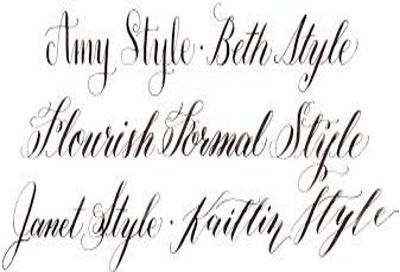 Amy Style · Beth Style
Flourish Formal Style
Janet Style · Kaitlin Style